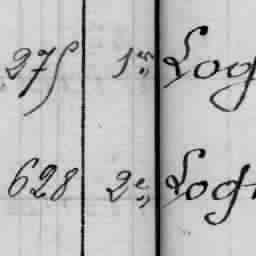 275 1er Log
628 2e Log